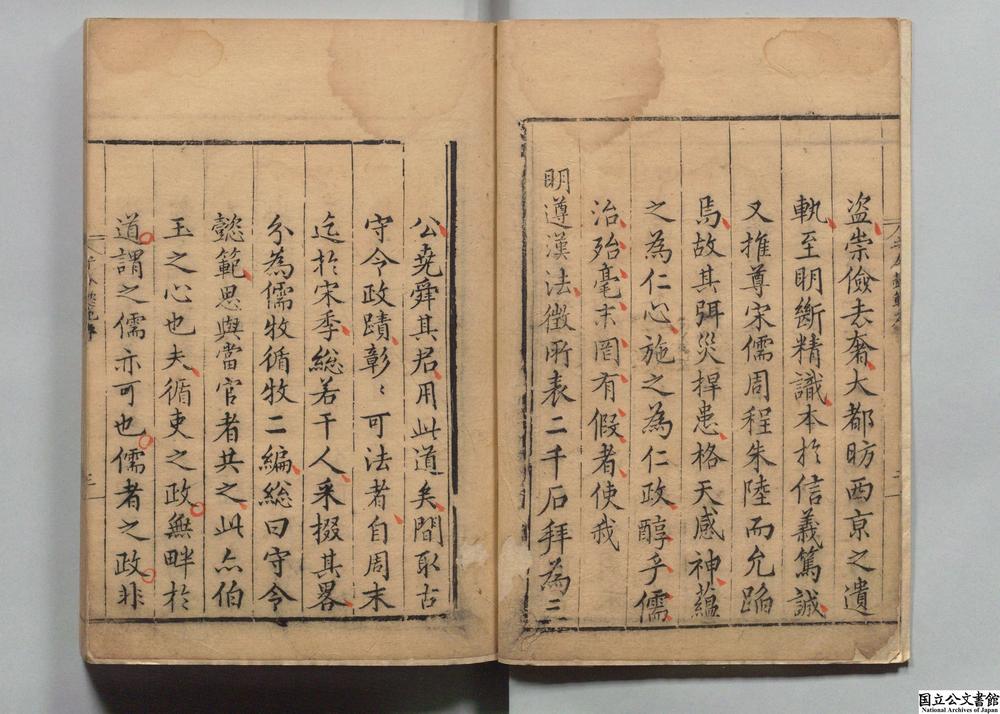 盗崇儉去奢大都昉西京之遺
軌至明斷精識本於信義篤誠
又推尊宋儒周程朱陸而允蹈
焉故其弭災捍患格天感神蘊
之為仁心施之為仁政醇乎儒
治殆毫末罔有假者使我
明遵漢法徵所表二千石拜為三
公堯舜其君用此道矣間取古
守令政蹟彰〻可法者自周末
迄於宋季總若干人采掇其畧
分為儒牧循牧二編総曰守令
懿範思與當官者共之此亦伯
玉之心也夫循吏之政無畔於
道謂之儒亦可也儒者之政非
国立公文書館
National Archives of Japan